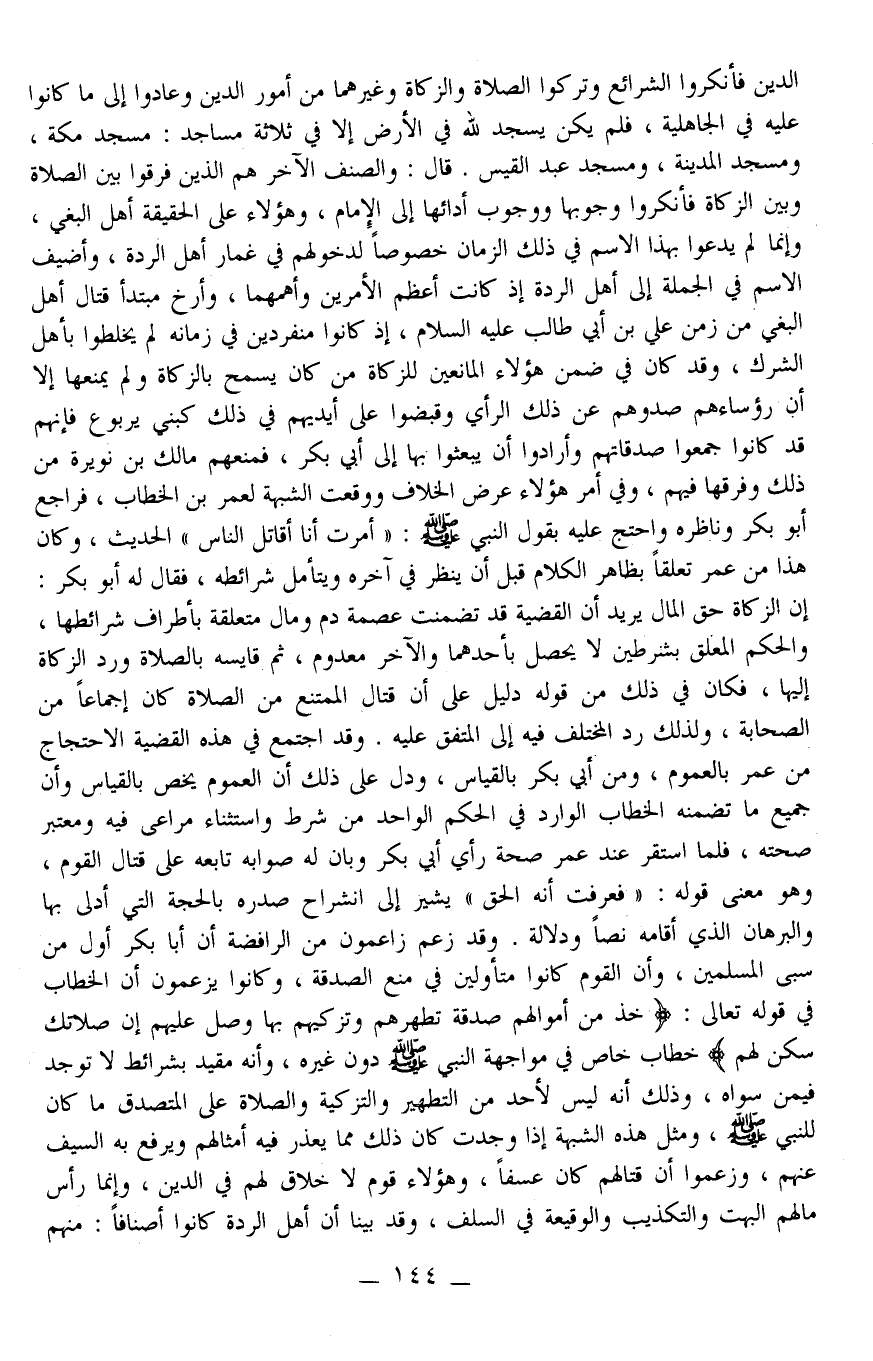 الدين فأنكروا الشرائع وتركوا الصلاة والزكاة وغيرهما من أمور الدين وعادوا إلى ما كانوا
عليه في الجاهلية ، فلم يكن يسجد لله في الأرض إلا في ثلاثة مساجد : مسجد مكة ،
ومسجد المدينة ، ومسجد عبد القيس . قال : والصنف الآخر هم الذين فرقوا بين الصلاة
وبين الزكاة فأنكروا وجوبها ووجوب أدائها إلى الإمام ، وهؤلاء على الحقيقة أهل البغي ،
وإنما لم يدعوا بهذا الاسم في ذلك الزمان خصوصاً لدخولهم في غمار أهل الردة ، وأضيف
الاسم في الجملة إلى أهل الردة إذ كانت أعظم الأمرين وأهمهما ، وأرخ مبتدأ قتال أهل
البغي من زمن علي بن أبي طالب عليه السلام ، إذ كانوا منفردين في زمانه لم يخلطوا بأهل
الشرك ، وقد كان في ضمن هؤلاء المانعين للزكاة من كان يسمح بالزكاة ولم يمنعها إلا
أن رؤساءهم صدوهم عن ذلك الرأي وقبضوا على أيديهم في ذلك كبني يربوع فإنهم
قد كانوا جمعوا صدقاتهم وأرادوا أن يبعثوا بها إلى أبي بكر ، فمنعهم مالك بن نويرة من
ذلك وفرقها فيهم ، وفي أمر هؤلاء عرض الخلاف ووقعت الشبهة لعمر بن الخطاب ، فراجع
أبو بكر وناظره واحتج عليه بقول النبي ﷺ : « أمرت أنا أقاتل الناس » الحديث ، وكان
هذا من عمر تعلقاً بظاهر الكلام قبل أن ينظر في آخره ويتأمل شرائطه ، فقال له أبو بكر :
إن الزكاة حق المال يريد أن القضية قد تضمنت عصمة دم ومال متعلقة بأطراف شرائطها ،
والحكم المعلق بشرطين لا يحصل بأحدهما والآخر معدوم ، ثم قايسه بالصلاة ورد الزكاة
إليها ، فكان في ذلك من قوله دليل على أن قتال الممتنع من الصلاة كان إجماعاً من
الصحابة ، ولذلك رد المختلف فيه إلى المتفق عليه . وقد اجتمع في هذه القضية الاحتجاج
من عمر بالعموم ، ومن أبي بكر بالقياس ، ودل على ذلك أن العموم يخص بالقياس وأن
جميع ما تضمنه الخطاب الوارد في الحكم الواحد من شرط واستثناء مراعى فيه ومعتبر
صحته ، فلما استقر عند عمر صحة رأي أبي بكر وبان له صوابه تابعه على قتال القوم ،
وهو معنى قوله : « فعرفت أنه الحق » يشير إلى انشراح صدره بالحجة التي أدلى بها
والبرهان الذي أقامه نصاً ودلالة . وقد زعم زاعمون من الرافضة أن أبا بكر أول من
سبى المسلمين ، وأن القوم كانوا متأولين في منع الصدقة ، وكانوا يزعمون أن الخطاب
في قوله تعالى : ﴿ خذ من أموالهم صدقة تطهرهم وتزكيهم بها وصل عليهم إن صلاتك
سكن لهم ﴾ خطاب خاص في مواجهة النبي ﷺ دون غيره ، وأنه مقيد بشرائط لا توجد
فيمن سواه ، وذلك أنه ليس لأحد من التطهير والتزكية والصلاة على المتصدق ما كان
للنبي ﷺ ، ومثل هذه الشبهة إذا وجدت كان ذلك مما يعذر فيه أمثالهم ويرفع به السيف
عنهم ، وزعموا أن قتالهم كان عسفاً ، وهؤلاء قوم لا خلاق لهم في الدين ، وإنما رأس
مالهم البهت والتكذيب والوقيعة في السلف ، وقد بينا أن أهل الردة كانوا أصنافاً : منهم
— ١٤٤ —